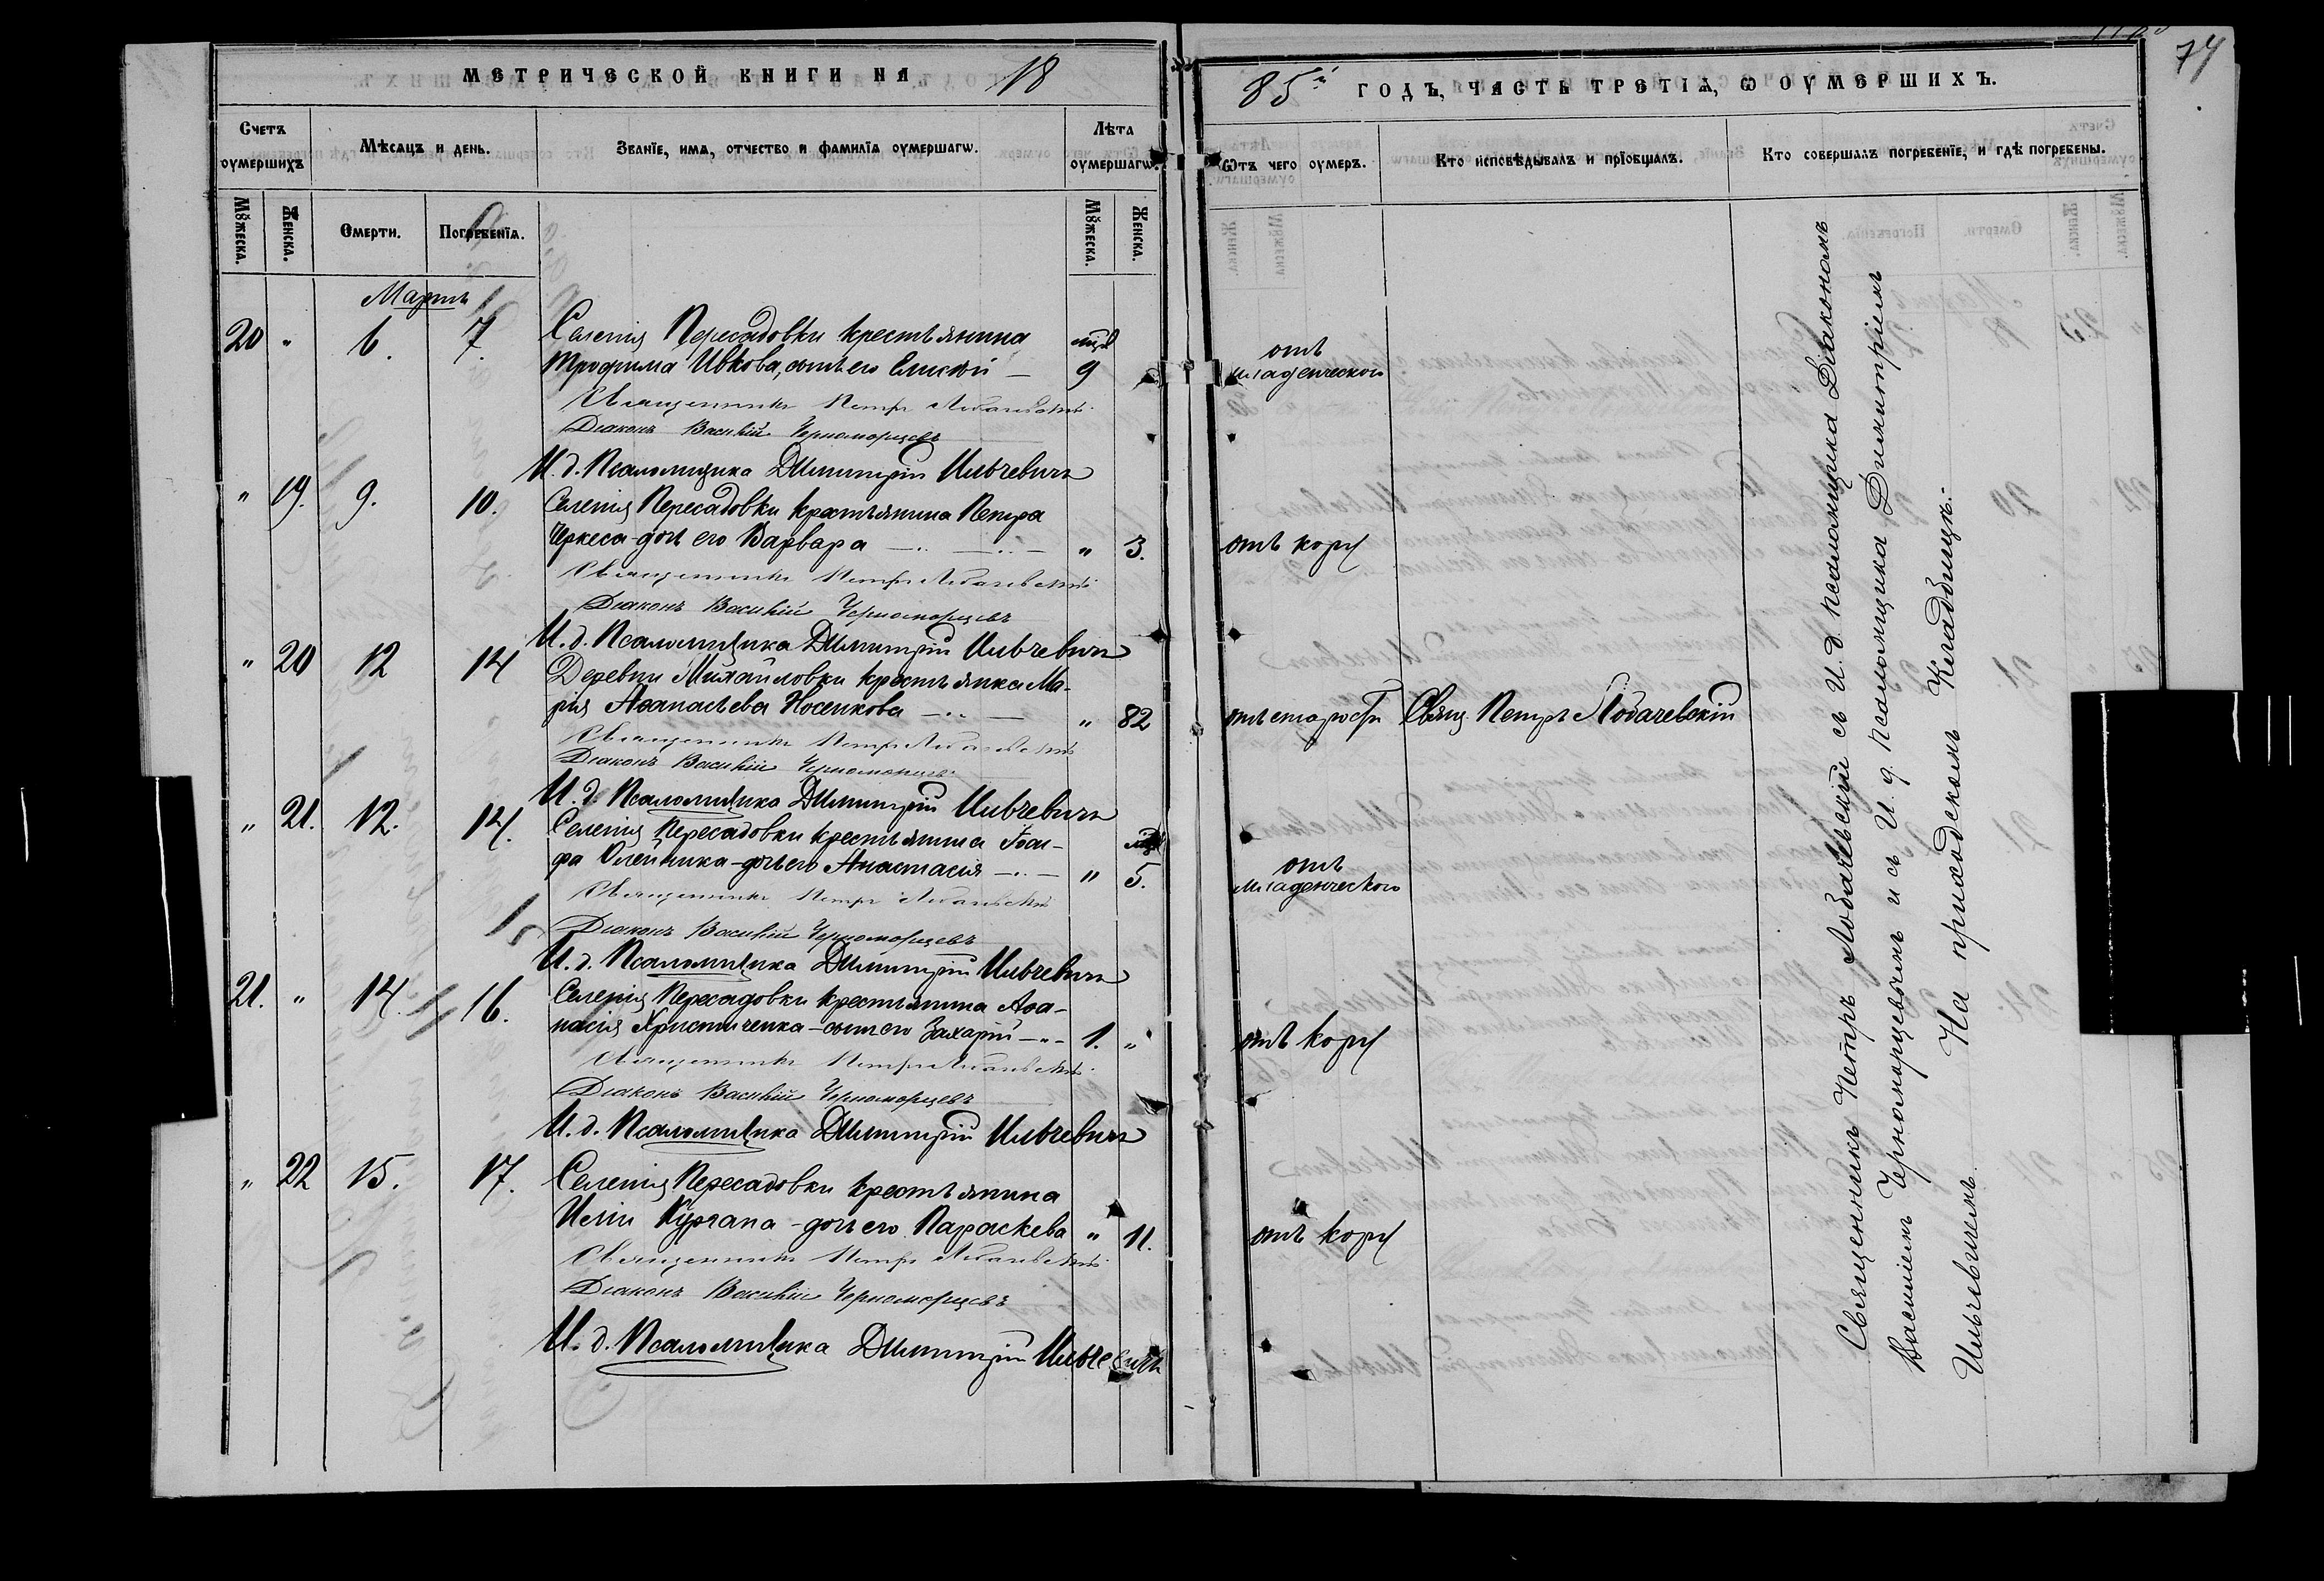 МЕТРИЧЕСКОЙ КНИГИ НА 18
Счетъ оумершихъ
Мѣсяцъ и день.
Званїе, имя, отчество и фамилїа оумершагѡ.
Лѣта оумершагѡ.
Мꙋжеска.
Женска.
Смерти.
Погребенїя.
Мꙋжеска.
Женска.
Мартъ
20 " 6. 7. Селенія Пересадовки крестьянина мцв
Трофима Ивкова, сынъ его Елисѣй — 9
Священникъ Петръ Лобачевскій
Діаконъ Василій Черноморцевъ
И. д. Псаломщика Димитрій Ильчевичъ
" 19. 9. 10. Селенія Пересадовки крестьянина Петра
Черкеса - дочь его Варвара — " 3.
Священникъ Петръ Лобачевскій
Діаконъ Василій Черноморцевъ
И. д. Псаломщика Димитрій Ильчевичъ
" 20 12 14 Деревни Михайловки крестьянка Ма-
рія Аѳанасьева Носенкова — " 82
Священникъ Петръ Лобачевскій
Діаконъ Василій Черноморцевъ
И. д. Псаломщика Димитрій Ильчевичъ
" 21. 12. 14. Селенія Пересадовки крестьянина Іоси-
фа Олейника - дочь его Анастасія — " 5.
Священникъ Петръ Лобачевскій
Діаконъ Василій Черноморцевъ
И. д. Псаломщика Димитрій Ильчевичъ
21. " 14. 16. Селенія Пересадовки крестьянина Аѳа-
насія Христиченка - сынъ его Захарій — 1. "
Священникъ Петръ Лобачевскій
Діаконъ Василій Черноморцевъ
И. д. Псаломщика Димитрій Ильчевичъ
" 22 15. 17. Селенія Пересадовки крестьянина
Иліи Кургана - дочь его Параскева " 11.
Священникъ Петръ Лобачевскій
Діаконъ Василій Черноморцевъ
И. д. Псаломщика Димитрій Ильчевичъ
74
85й ГОДЪ, ЧАСТЬ ТРЕТІЯ, Ѡ ОУМЕРШИХЪ.
Ѿтъ чего оумеръ.
Кто исповѣдывалъ и прїобщалъ.
Кто совершалъ погребенїе, и гдѣ погребены.
отъ
младенческого
отъ кори
отъ старости Свящ. Петръ Лобачевскій
отъ
младенческого
отъ кори
отъ кори
Священникъ Петръ Лобачевскій съ И. д. псаломщика Діакономъ
Василіемъ Черноморцевымъ и съ И. д. псаломщика Димитріемъ
Ильчевичемъ. На приходскомъ Кладбищѣ.